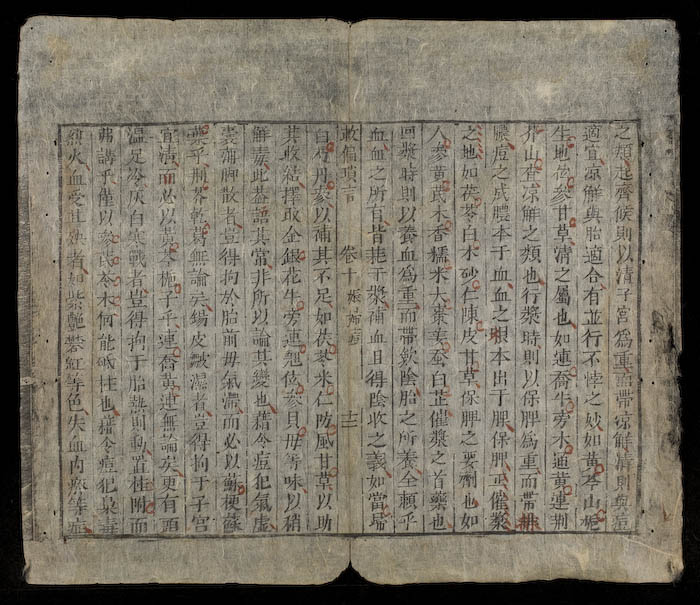 之類起齊候則以清子宮爲重而帶凉解清則與痘
適宜凉解與胎適合有並行不悖之妙如黃芩山梔
生地玄參甘草清之屬也如連喬牛旁木通黃連荆
芥山查凉解之類也行漿時則以保脾爲重而帶排
膿痘之成膿本于血血之根本出于脾保脾正催漿
之地如茯苓白术砂仁陳皮甘草保脾之要劑也如
人參黃芪木香糯米大棗姜蚕白芷催漿之首藥也
回漿時則以養血爲重而帶歛陰胎之所養全賴乎
血血之所有皆耗于漿補血且得陰收之義如當歸
救偏瑣言 卷十 娠婦痘 十二
白芍丹參以補其不足如茯苓米仁防風甘草以助
其收結擇取金銀花牛旁連翹玄參貝母等味以稍
解蔟此葢語其常非所以論其變也藉令痘犯氣虛
囊薄脚散者豈得拘於胎前毋氣滯而必以蘇梗蘇
葉乎荆芥乾葛無論矣錫皮皺濕者豈得拘于子宮
宜清而必以黃芩梔子乎連喬黃連無論矣更有頭
溫足冷灰白寒戰者豈得拘于胎熱則動置桂附而
弗講乎僅以參芪苓术何能砥柱也藉令痘犯梟毒
烈火血受其殃者如紫艷礬紅等色失血內瘀等症